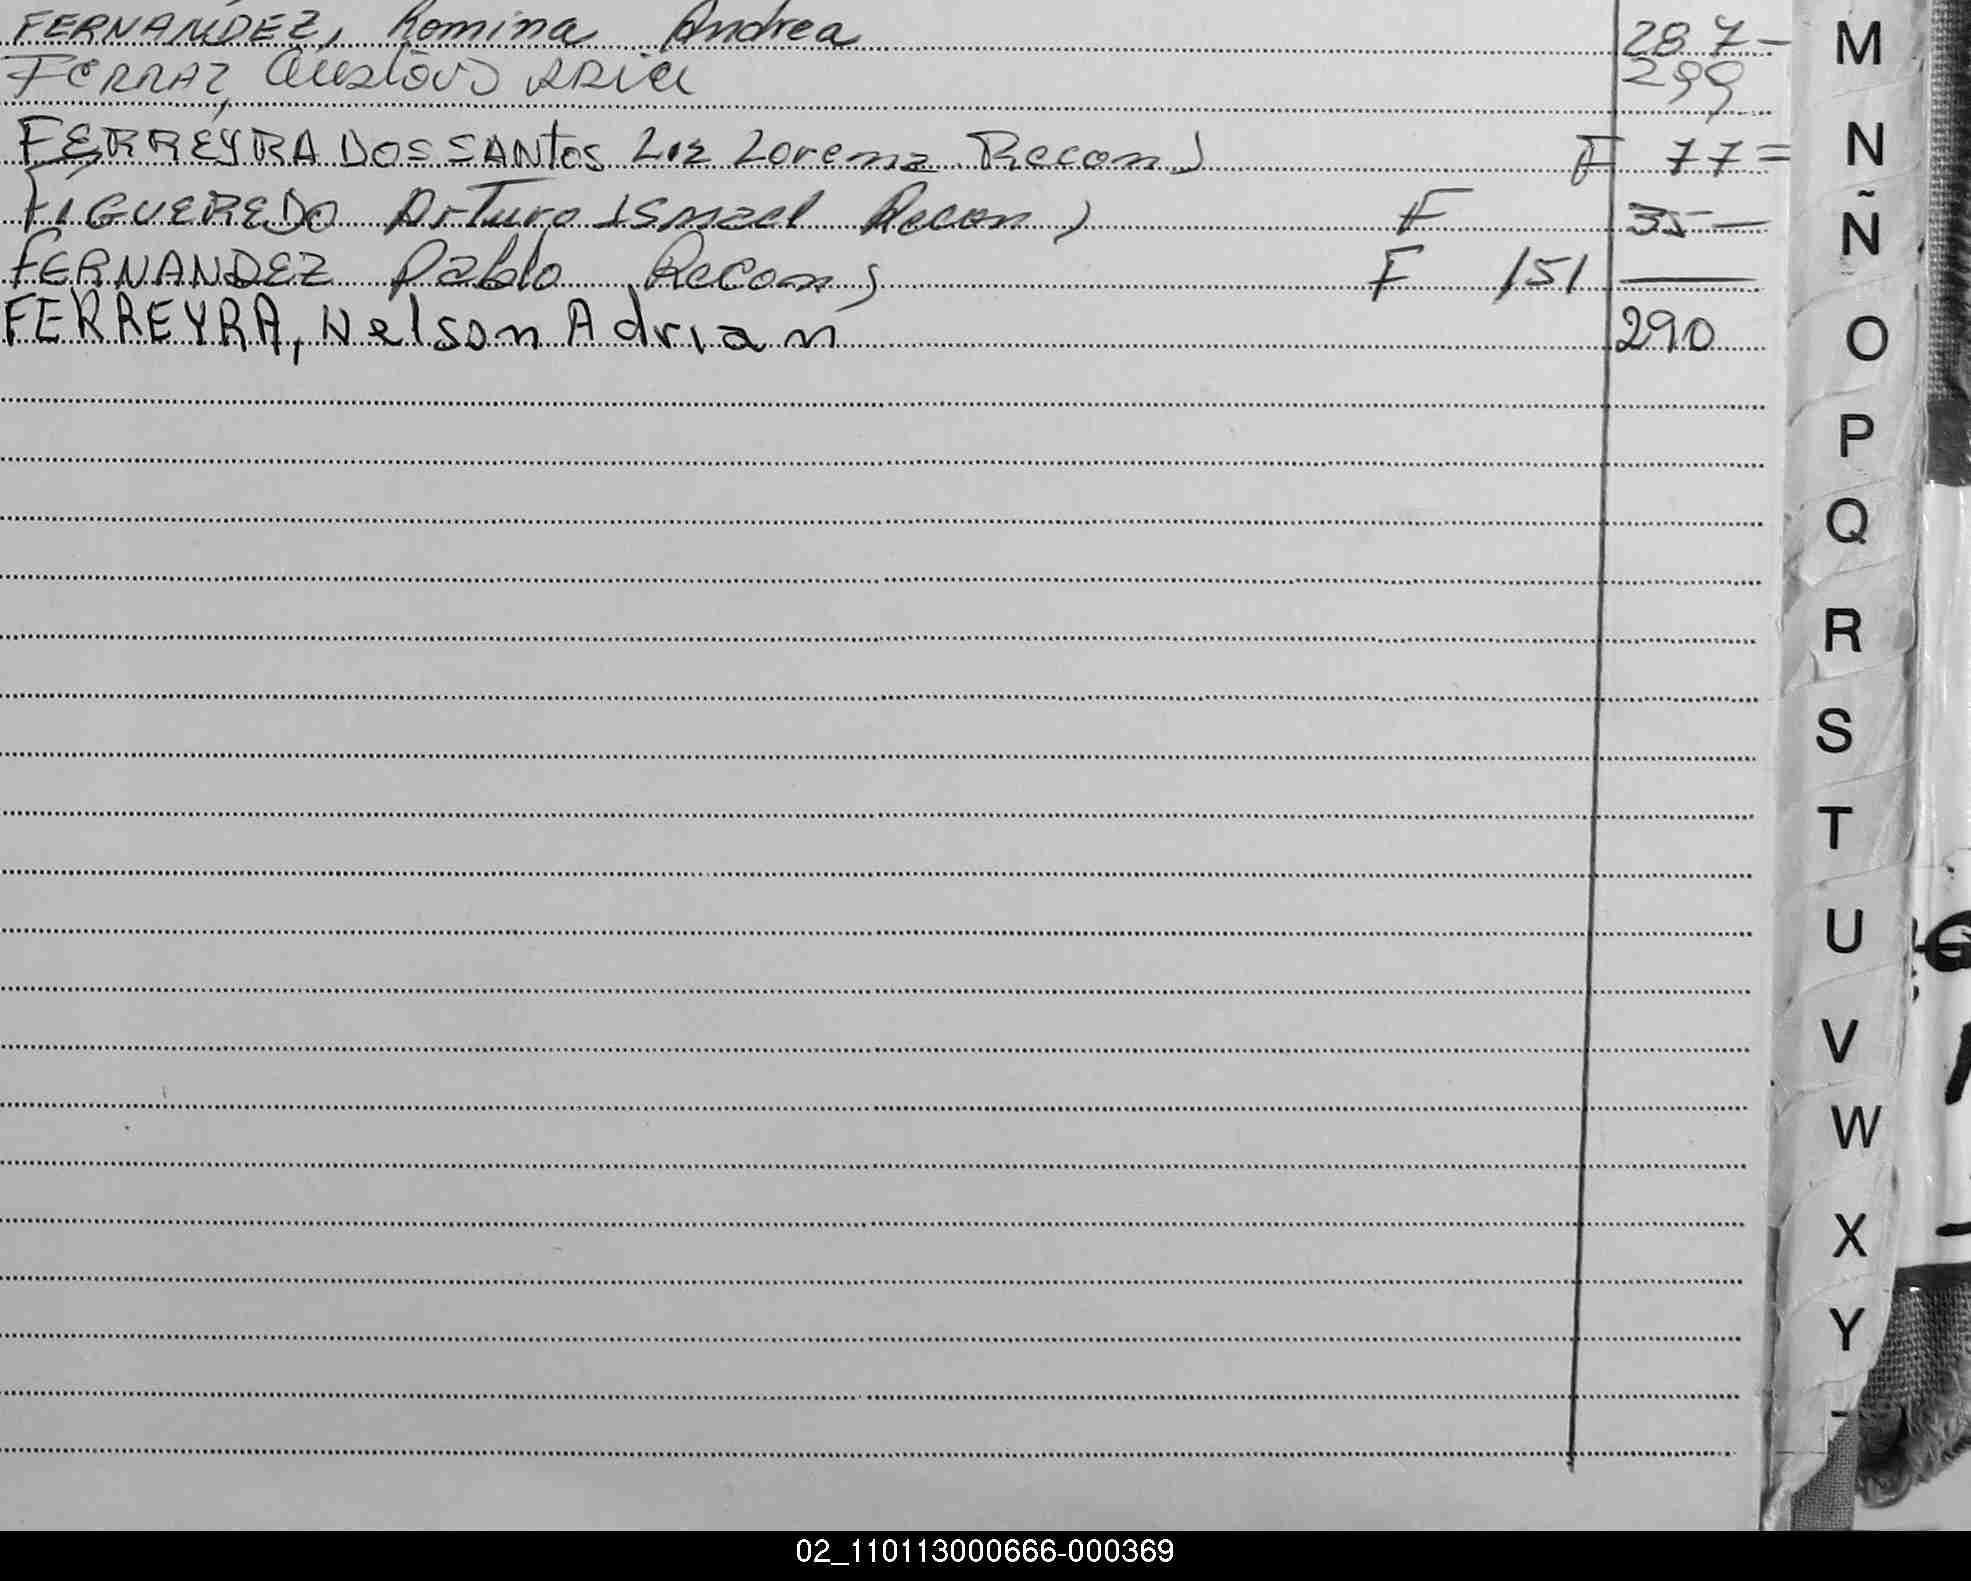 FERNANDEZ, Romina Andrea 287-
FERRAZ, Gustavo 299
FERREYRA DOS SANTOS Liz Lorena Recon) F 77=
FIGUEREDO Arturo Ismael Recon) F 35-
FERNANDEZ Pablo Recon) F 151 —
FERREYRA, Nelson Adrian 290
M
N
Ñ
O
P
Q
R
S
T
U
V
W
X
Y
02_110113000666-000369